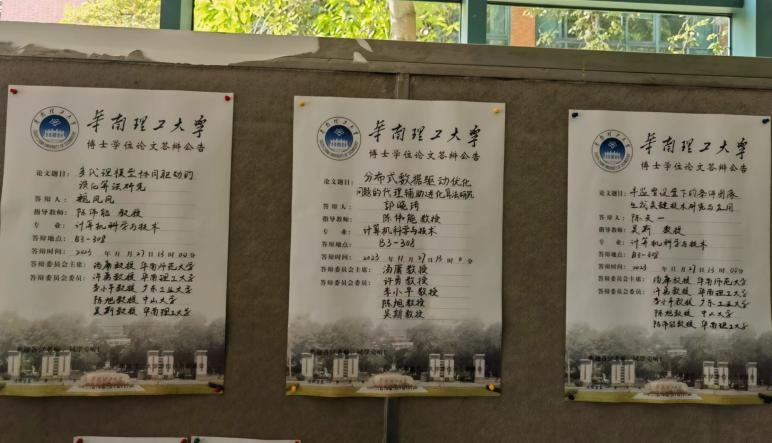 华南理工大学
博士学位论文答辩公告
论文题目：多代理模型协同驱动的
演化算法研究
答辩人：
指导教师：陈伟能 教授
专业：计算机科学与技术
答辩地点：B3-308
答辩时间：2023年11月27日15时00分
答辩委员会主席：汤庸教授 华南师范大学
答辩委员会委员：许勇教授 华南理工大学
李小平教授 广东工业大学
陈旭教授 中山大学
吴斯教授 华南理工大学
华南理工大学
博士学位论文答辩公告
论文题目：分布式数据驱动优化
问题的代理辅助进化算法研究
答辩人：郭晓琦
指导教师：陈伟能教授
专业：计算机科学与技术
答辩地点：B3-308
答辩时间：2023年11月27日15时0分
答辩委员会主席：汤庸教授
答辩委员会委员：许勇教授
李小平教授
陈旭教授
吴斯教授
华南理工大学
博士学位论文答辩公告
论文题目：半监督设置下的条件图像
生成关键技术研究与应用
答辩人：陈天一
指导教师：吴斯 教授
专业：计算机科学与技术
答辩地点：B3-308
答辩时间：2023年11月27日15时00分
答辩委员会主席：汤庸教授 华南师范大学
答辩委员会委员：许勇教授 华南理工大学
李小平教授 广东工业大学
陈旭教授 中山大学
陈伟能教授 华南理工大学